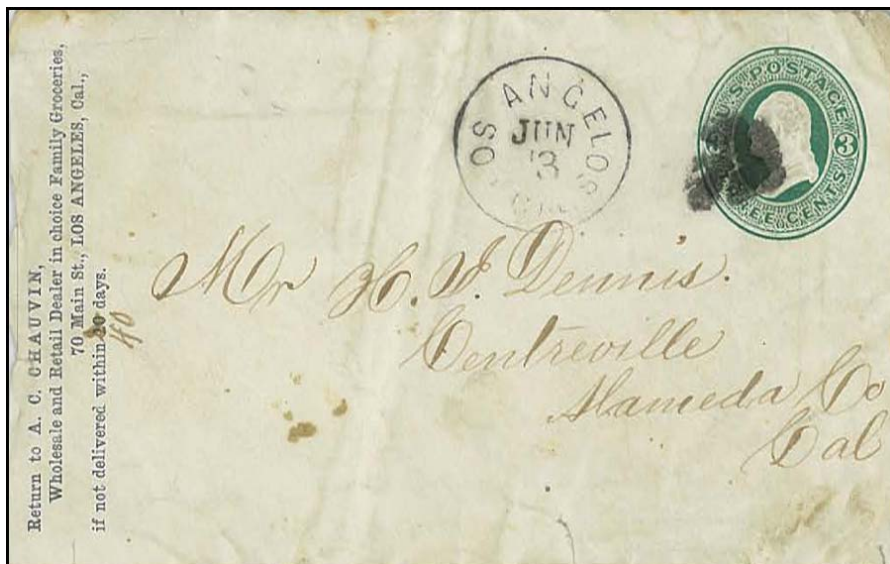 Return to A. C. CHAUVIN,
Wholesale and Retail Dealer in choice Family Groceries,
70 Main St., LOS ANGELES, Cal.,
if not delivered within days.
40
LOS ANGELOS
JUN
3
U.S. POSTAGE
3
THREE CENTS
Mr H. J. Dennis.
Centreville
Alameda Co
Cal